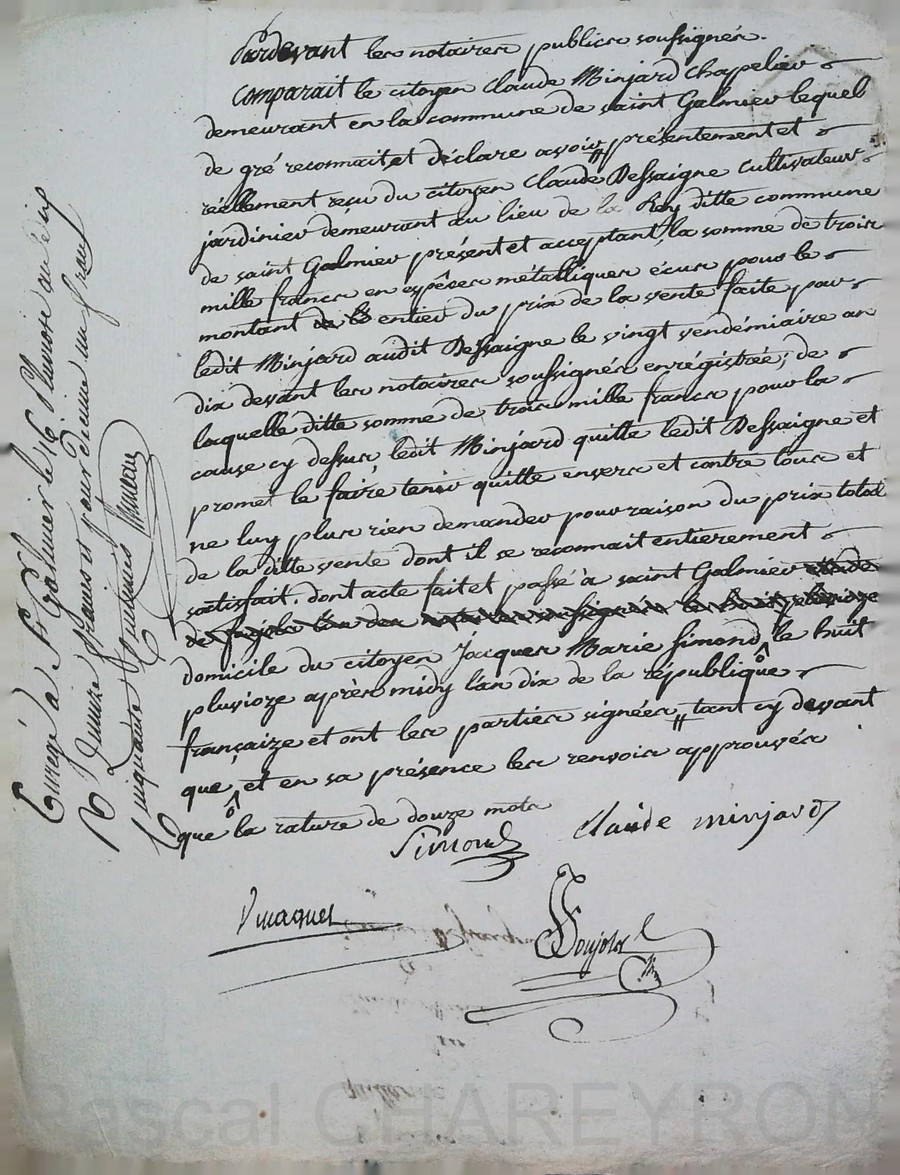 Pardevant les notaires publics soussignés.
comparait le citoyen Claude Minjard Chapelier
demeurant en la commune de saint Galmier lequel
de gré reconnait et déclare avoir présentement et
réellement reçu du citoyen Claude Dessaigne cultivateur
jardinier demeurant au lieu de la Rey ditte commune
de saint Galmier présent et acceptant, la somme de trois
mille francs en espèces métalliques écus pour le
montant entier du prix de la vente faite par
ledit Minjard audit Dessaigne le vingt vendémiaire an
dix devant les notaires soussignés enrégistrée; de
laquelle ditte somme de trois mille francs pour la
cause cy dessus, ledit Minjard quitte ledit Dessaigne et
promet le faire tenir quitte envers et contre tous et
ne luy plus rien demander pour raison du prix total
de la ditte vente dont il se reconnait entierement
satisfait. dont acte fait et passé à saint Galmier
domicile du citoyen Jacques Marie Simond, le huit
pluvioze après midy l'an dix de la république
françaize et ont les parties signées, tant cy devant
que, et en sa présence les renvois approuvés
que la rature de douze mots
Simond Claude minjard
Dmaques
Enregé à St Galmier le 16 Pluviose an dix
francs et pour dixieme un franc
Cinquante Centimes
Pascal CHAREYRON